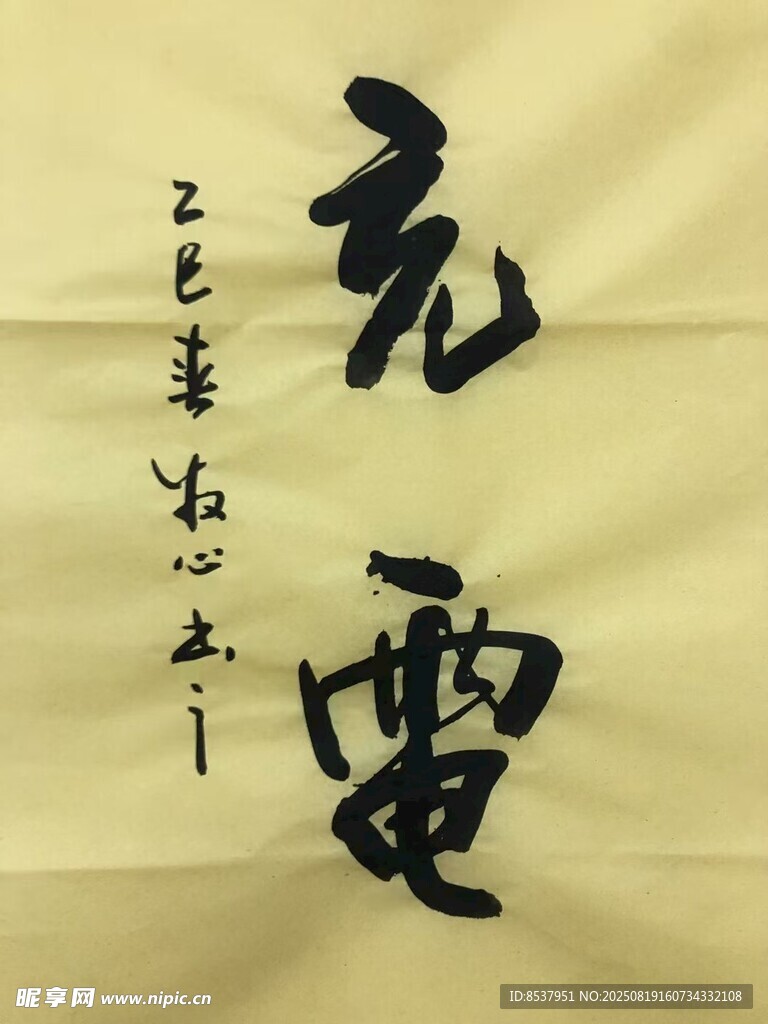 充電
乙巳春牧心书
昵享网 www.nipic.cn
ID:8537951 NO:20250819160734332108